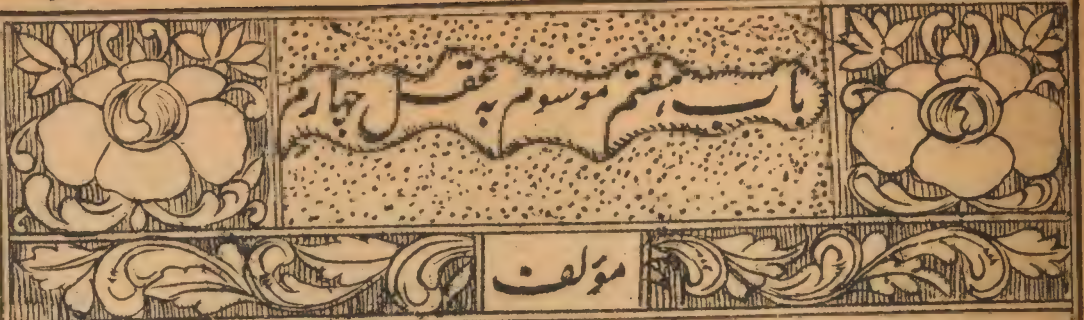 باب ہفتم موسوم بہ عقل چہارم
مؤلف